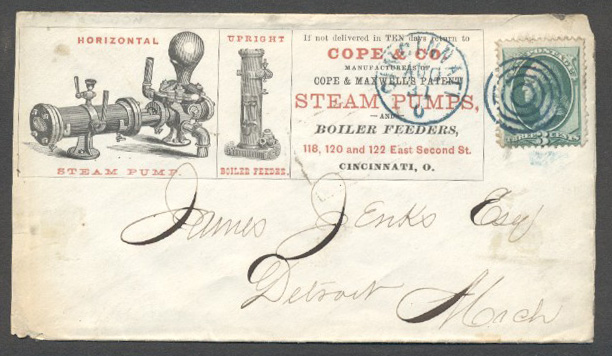 HORIZONTAL
STEAM PUMP.
UPRIGHT
BOILER FEEDER.
If not delivered in TEN days return to
COPE & CO.
MANUFACTURERS OF
COPE & MAXWELL'S PATENT
STEAM PUMPS,
—AND—
BOILER FEEDERS,
118, 120 and 122 East Second St.
CINCINNATI, O.
CINCINNATI
O
POSTAGE
THREE CENTS
3
James Jenks Esq
Detroit Mich